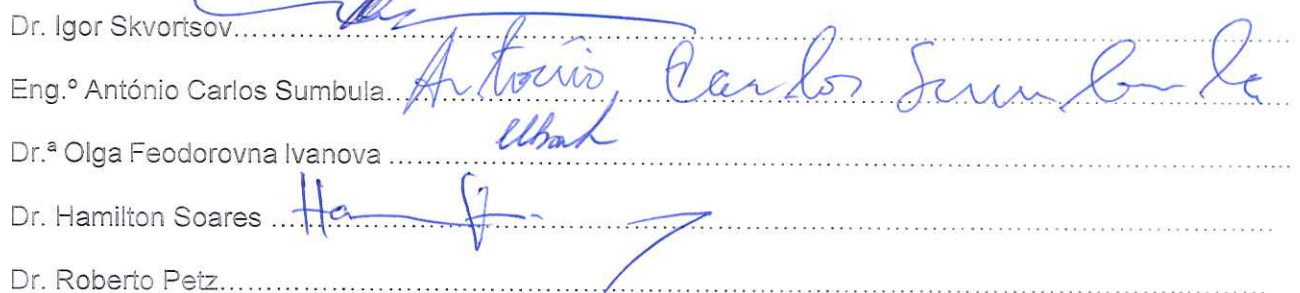 Dr. Igor Skvortsov..........................................................................................
Eng.º António Carlos Sumbula..António Carlos Sumbula
Dr.ª Olga Feodorovna Ivanova ..........................................................................................
Dr. Hamilton Soares ..........................................................................................
Dr. Roberto Petz..........................................................................................